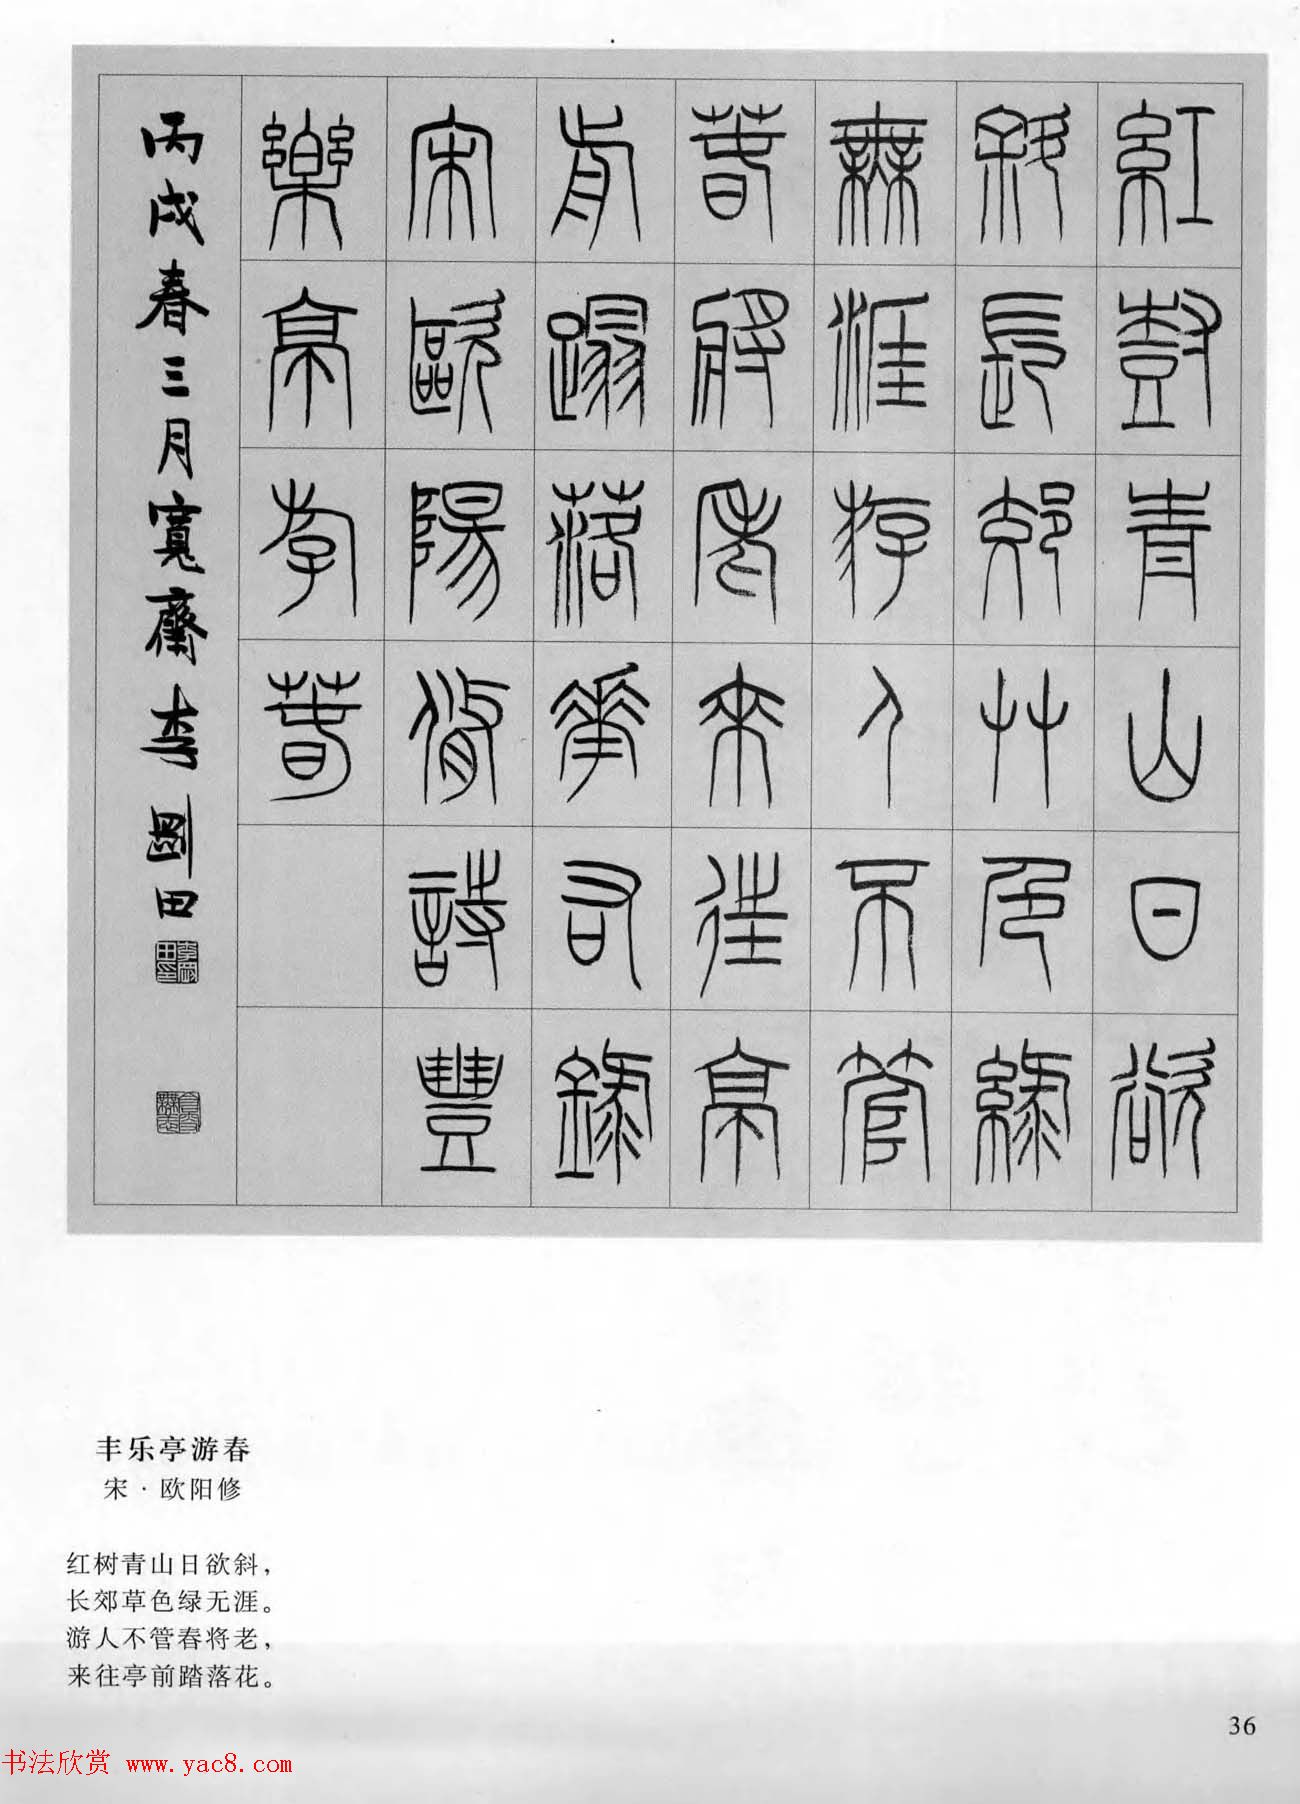 紅尌青山日欲
斜長郊艸色綠
無涯斿人不管
萅將老來往亭
前蹋落華右錄
宋歐陽脩詩豐
樂亭斿萅
丙戌春三月寬齋李剛田
李剛田印
丰乐亭游春
宋·欧阳修
红树青山日欲斜，
长郊草色绿无涯。
游人不管春将老，
来往亭前踏落花。
36
书法欣赏 www.yac8.com